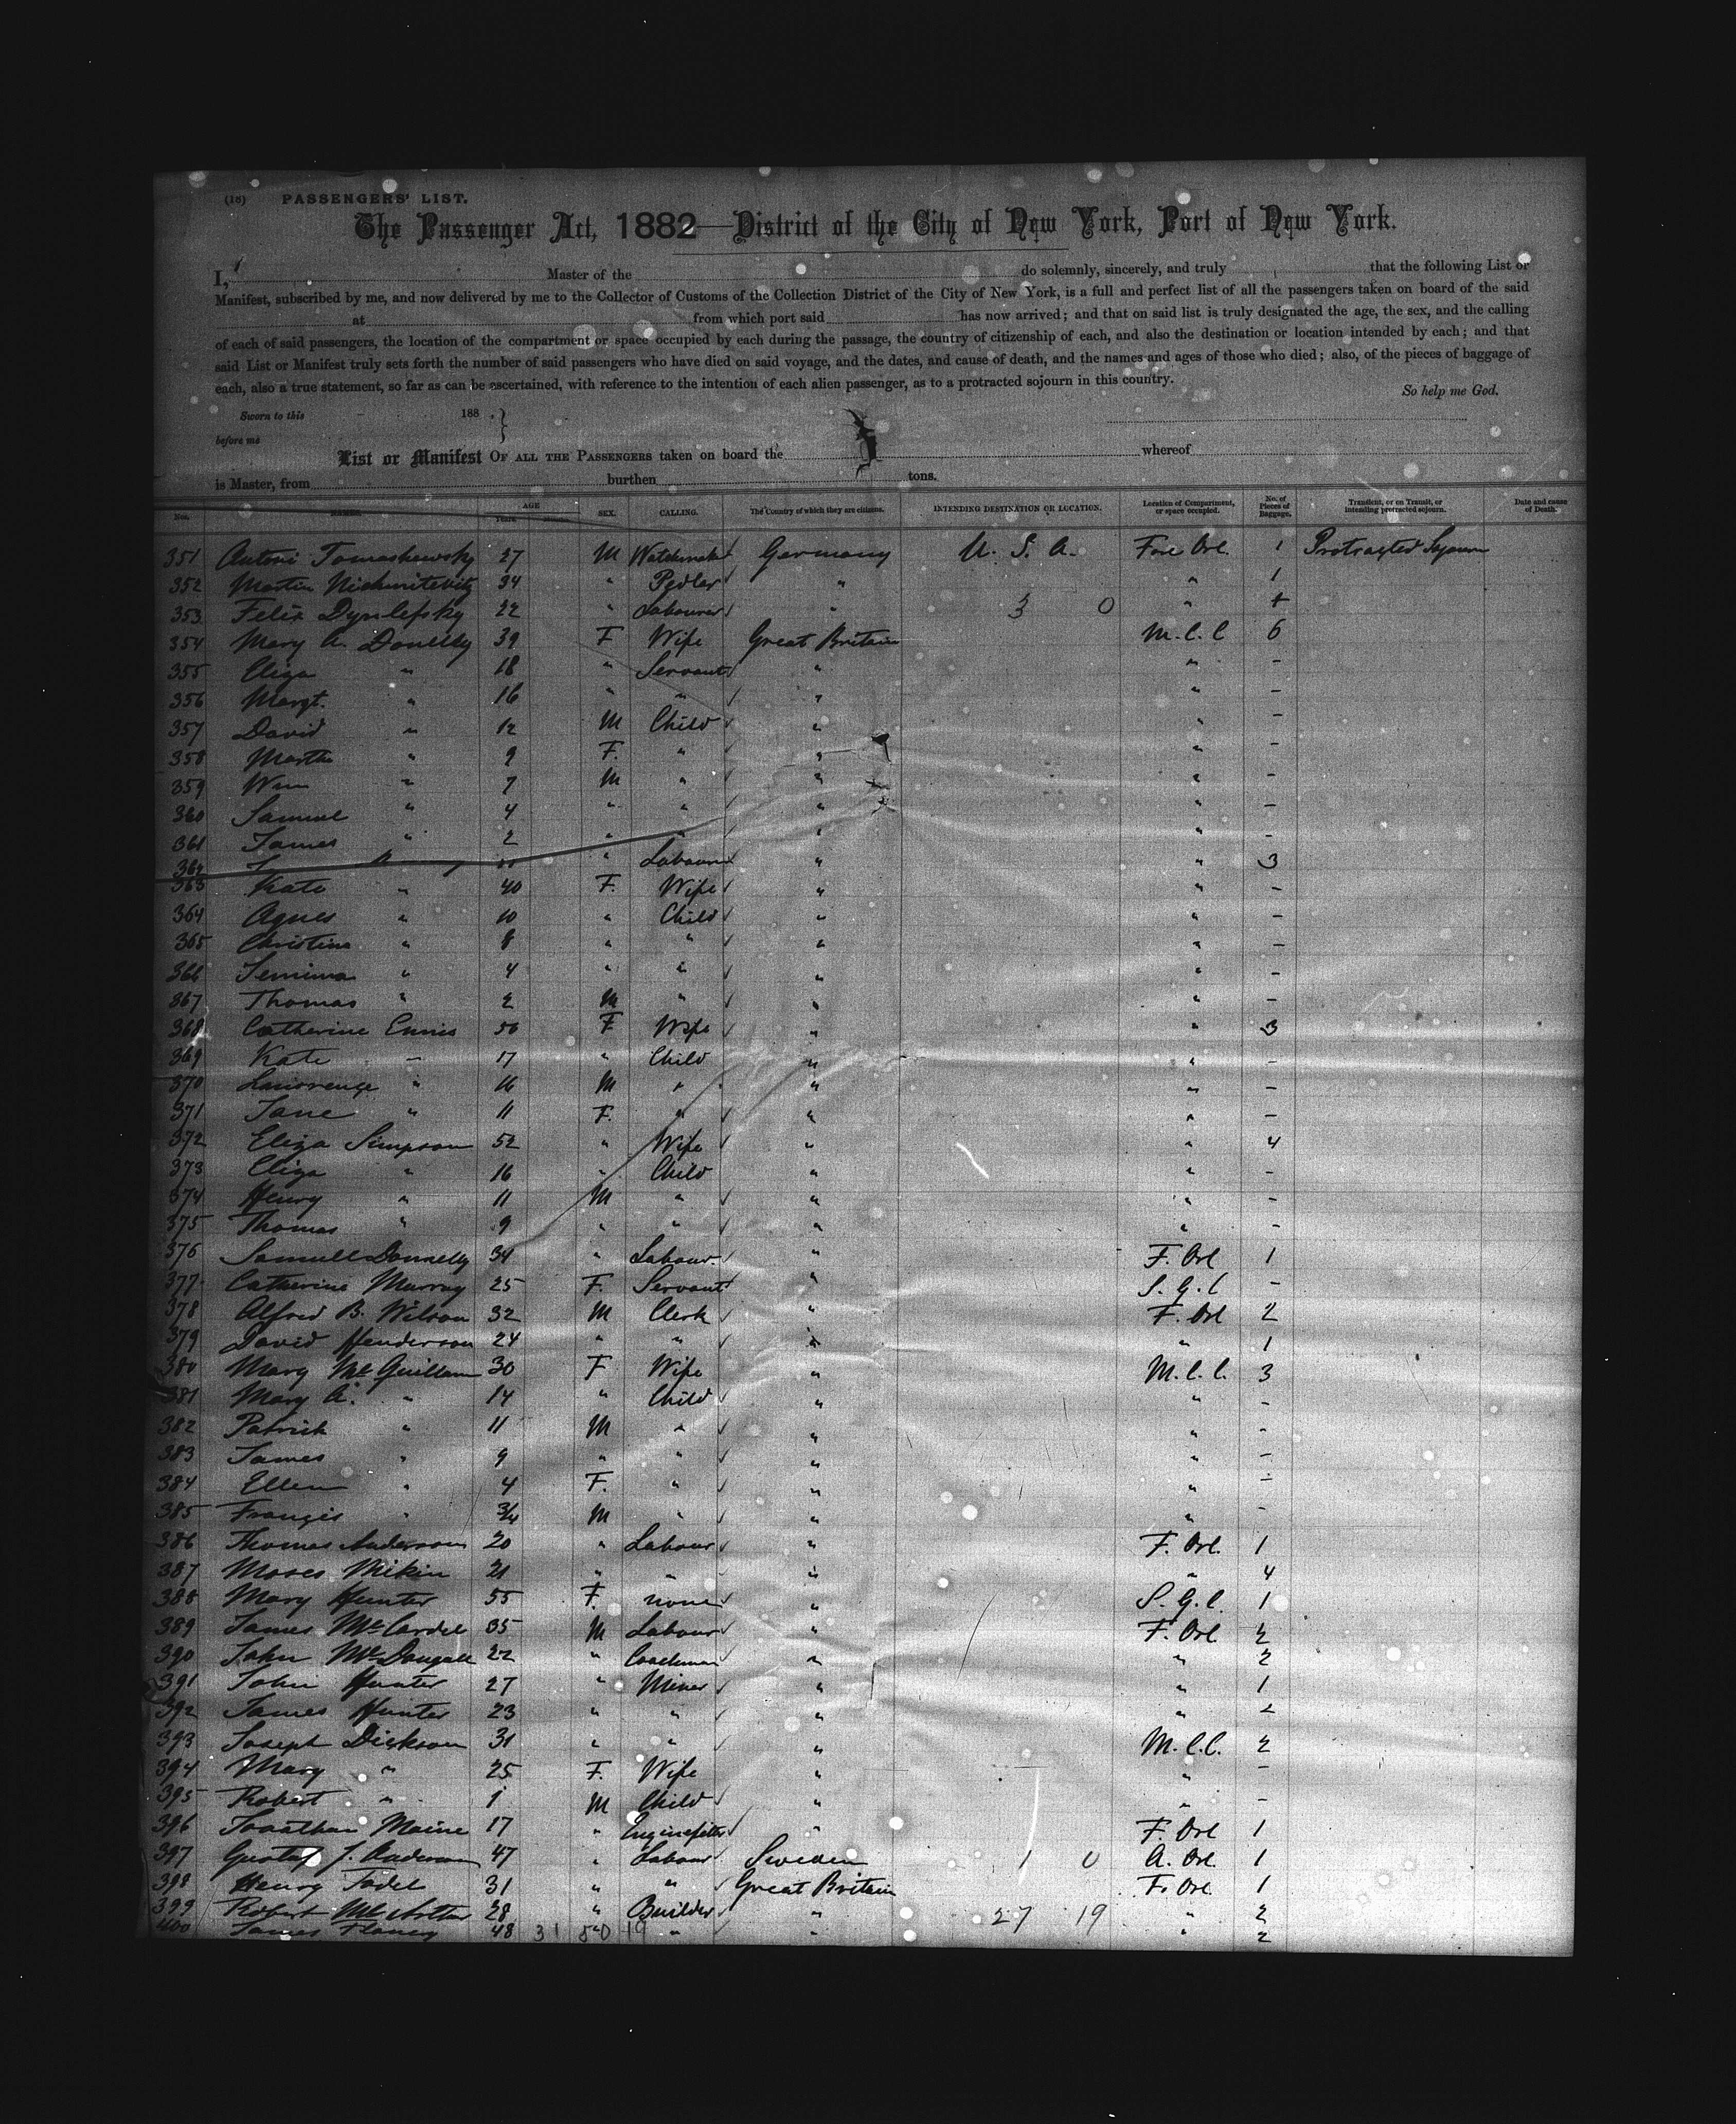 (18) PASSENGERS' LIST.
The Passenger Act, 1882—District of the City of New York, Port of New York.
I, Master of the do solemnly, sincerely, and truly that the following List or
Manifest, subscribed by me, and now delivered by me to the Collector of Customs of the Collection District of the City of New York, is a full and perfect list of all the passengers taken on board of the said
at from which port said has now arrived; and that on said list is truly designated the age, the sex, and the calling
of each of said passengers, the location of the compartment or space occupied by each during the passage, the country of citizenship of each, and also the destination or location intended by each; and that
said List or Manifest truly sets forth the number of said passengers who have died on said voyage, and the dates, and cause of death, and the names and ages of those who died; also, of the pieces of baggage of
each, also a true statement, so far as can be ascertained, with reference to the intention of each alien passenger, as to a protracted sojourn in this country.
So help me God.
Sworn to this 188 .
before me
List or Manifest OF ALL THE PASSENGERS taken on board the whereof
is Master, from burthen tons.
Nos. NAMES. AGE Years. Months. SEX. CALLING. The Country of which they are citizens. INTENDING DESTINATION OR LOCATION. Location of Compartment, or space occupied. No. of Pieces of Baggage. Transient, or on Transit, or intending protracted sojourn. Date and cause of Death.
351 Antoni Tomashewsky 27 M Germany U. S. A. Fore Orl. 1 Protracted Sojourn
352 Martin 34 " Pedlar " " 1
353 Felix 22 " Labourer " 3 0 "
354 Mary A. Donelly 39 F Wife Great Britain M.C.C 6
355 Eliza " 18 " Servant " " -
356 Margt. " 16 " " " " -
357 David " 12 M Child " " -
358 Martha " 9 F. " " " -
359 Wm " 7 M " " " -
360 Samuel " 4 " " " " -
361 James " 2 " " " " -
362 " Labourer " " 3
363 Kate " 40 F. Wife " " -
364 Agnes " 10 " Child " " -
365 Christina " 8 " " " " -
366 Jemima " 4 " " " " -
367 Thomas " 2 M " " " -
368 Catherine Ennis 50 F Wife " " 3
369 Kate " 17 " Child " " -
370 " 16 M " " " -
371 Jane " 11 F. " " " -
372 Eliza Simpson 52 " Wife " " 4
373 Eliza " 16 " Child " " -
374 Henry " 11 M " " " -
375 Thomas " 9 " " " " -
376 Samuel Donnelly 34 " Labour. " F. Orl 1
377 Catherine Murray 25 F. Servant " S.G.C -
378 Alfred B. Wilson 32 M Clerk " F. Orl 2
379 David Henderson 24 " " " " 1
380 Mary McQuillam 30 F Wife " M.C.C. 3
381 Mary A. " 14 " Child " " -
382 Patrick " 11 M " " " -
383 James " 9 " " " " -
384 Ellen " 4 F. " " " -
385 Francis " 3/4 M " " " -
386 Thomas Anderson 20 " Labour " F. Orl. 1
387 Moses Mikin 21 " " " " 4
388 Mary Hunter 55 F. none " S.G.C. 1
389 James McCardel 35 M Labour " F. Orl 2
390 John McDougall 22 " Coachman " " 2
391 John Hunter 27 " Miner " " 1
392 James Hunter 23 " " " " 2
393 Joseph Dickson 31 " " " M.C.C. 2
394 Mary " 25 F. Wife " " -
395 Robert " 1 M Child " " -
396 Jonathan Maine 17 " Enginefitter " F. Orl 1
397 Gustaf J. Anderson 47 " Labour Sweden 1 0 A. Orl. 1
398 Henry Fadel 31 " " Great Britain F. Orl. 1
399 Robert McArthur 28 " Builder " 27 19 " 2
400 James 48 31 50 19 " " " 2